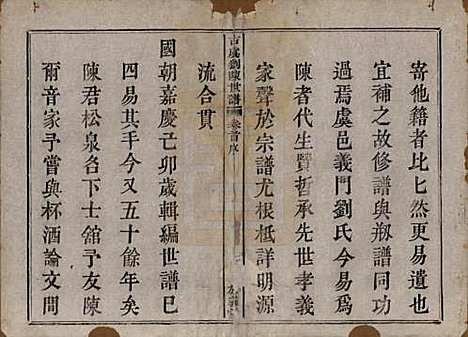 寄他籍者比匕然更易遺也
宜補之故修譜與刱譜同功
過焉虞邑義門劉氏今易爲
陳者代生賢哲承先世孝義
家聲於宗譜尤根柢詳明源
流合貫
古虞劉陳世譜
卷首序
國朝嘉慶己卯歲輯編世譜已
四易其手今又五十餘年矣
陳君松泉各下士舘予友陳
爾音家予嘗與杯酒論文間